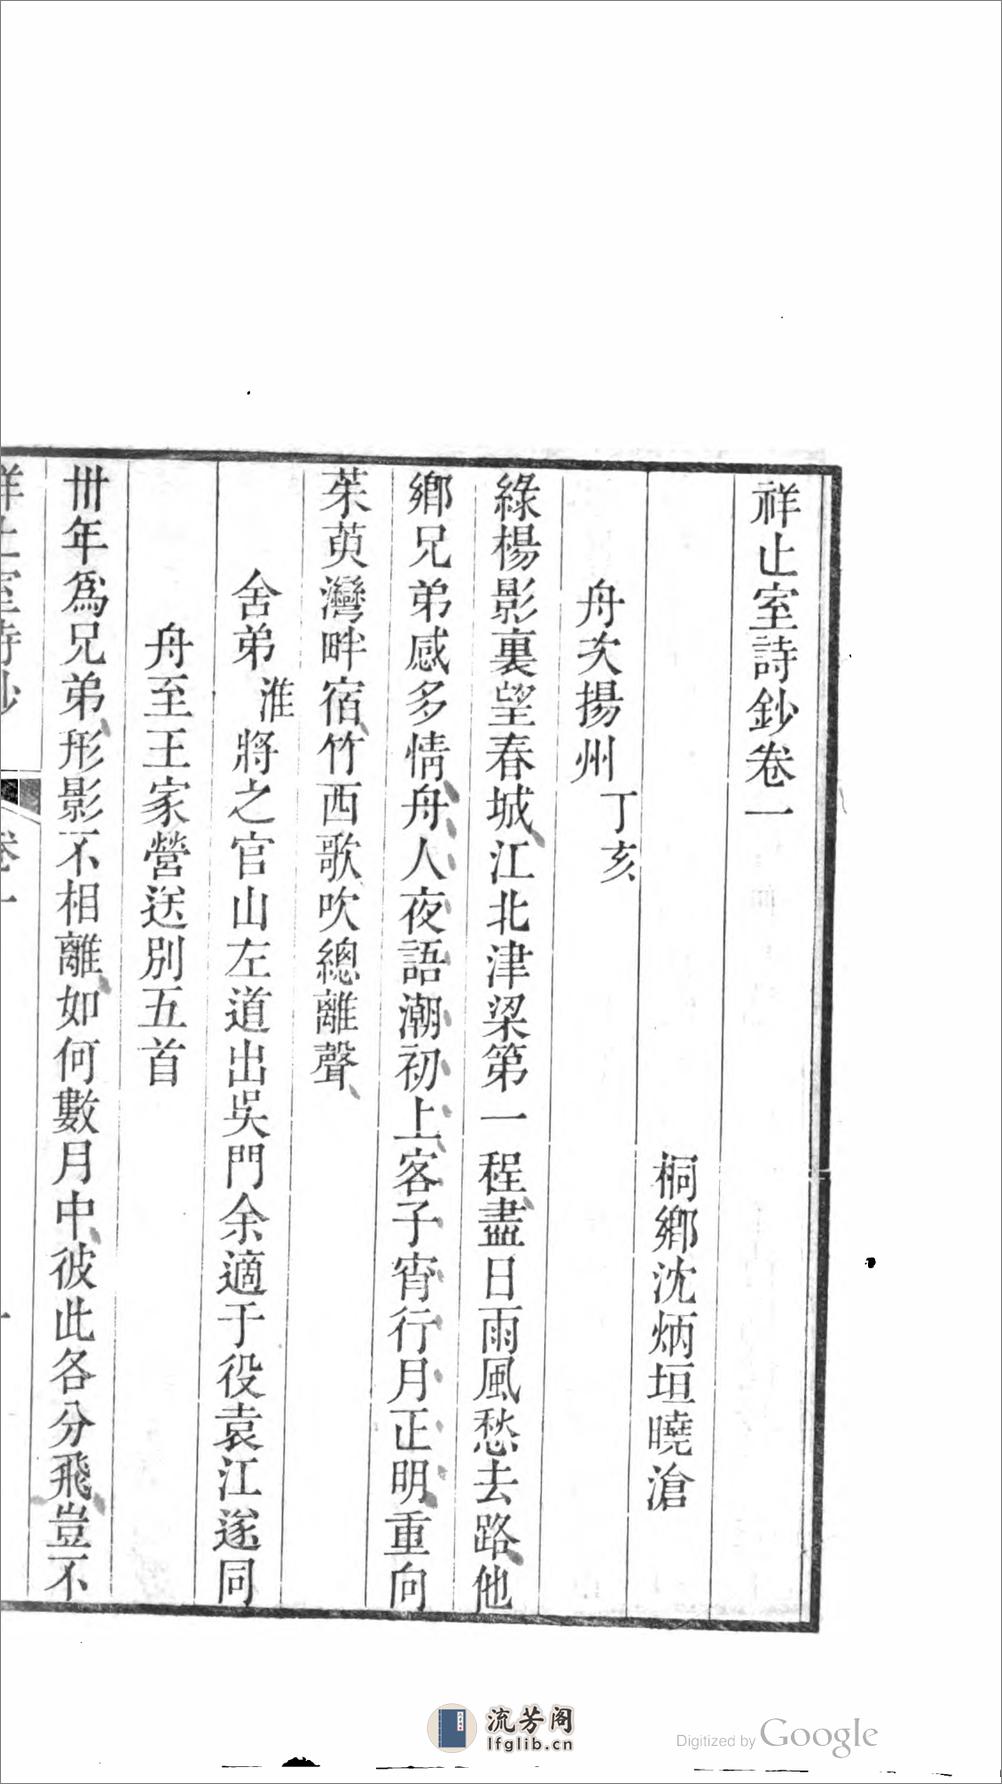 祥止室詩鈔卷一
桐鄉沈炳垣曉滄
舟次揚州丁亥
綠楊影裏望春城江北津梁第一程盡日雨風愁去路他
鄉兄弟感多情舟人夜語潮初上客子宵行月正明重向
茱萸灣畔宿竹西歌吹總離聲
舍弟淮將之官山左道出吳門余適于役袁江遂同
舟至王家營送別五首
卅年為兄弟形影不相離如何數月中彼此各分飛豈不
祥止室詩鈔 卷一 一
流芳阁
lfglib.cn
Digitized by Google